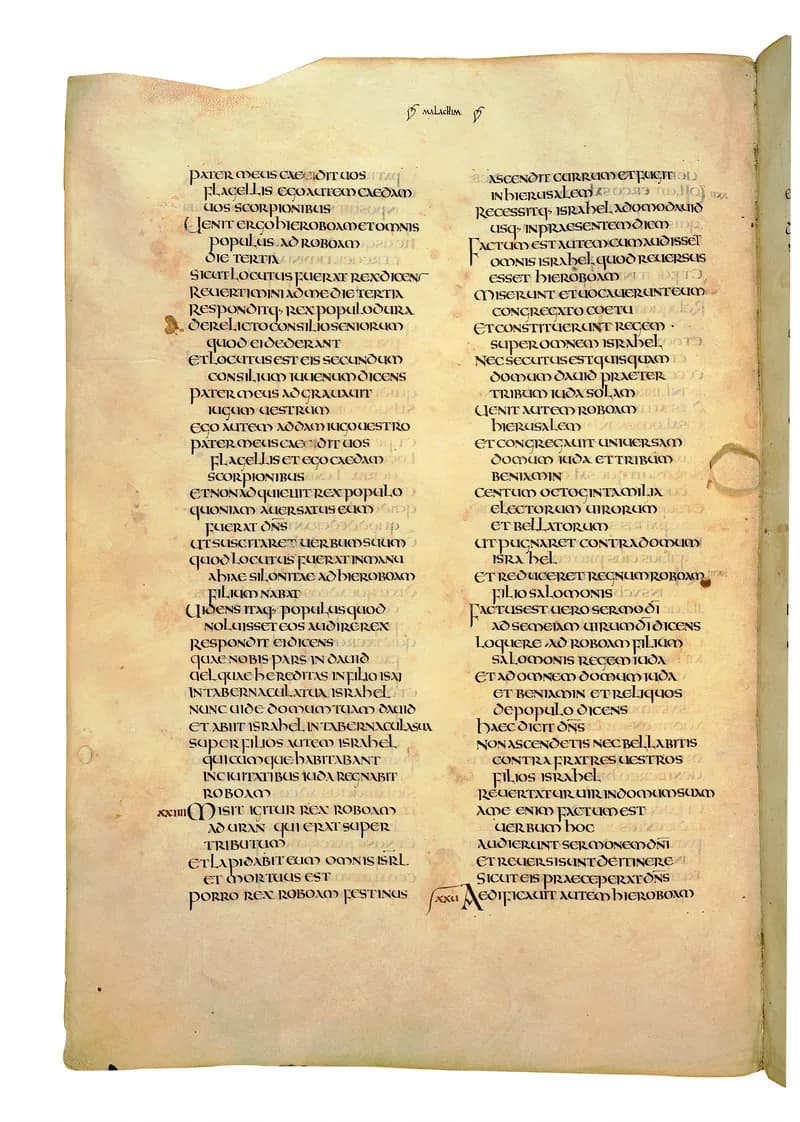 MALACHIM
PATER MEUS CAECIDIT UOS
FLAGELLIS EGO AUTEM CAEDAM
UOS SCORPIONIBUS
UENIT ERGO HIEROBOAM ET OMNIS
POPULUS AD ROBOAM
DIE TERTIA
SICUT LOCUTUS FUERAT REX DICENS
REUERTIMINI AD ME DIE TERTIA
RESPONDITQ· REX POPULO DURA
DERELICTO CONSILIO SENIORUM
QUOD EI DEDERANT
ET LOCUTUS EST EIS SECUNDUM
CONSILIUM IUUENUM DICENS
PATER MEUS ADGRAUAUIT
IUGUM UESTRUM
EGO AUTEM ADDAM IUGO UESTRO
PATER MEUS CAECIDIT UOS
FLAGELLIS ET EGO CAEDAM
SCORPIONIBUS
ET NON ADQUIEUIT REX POPULO
QUONIAM AUERSATUS EUM
FUERAT DN̄S
UT SUSCITARET UERBUM SUUM
QUOD LOCUTUS FUERAT IN MANU
AHIAE SILONITAE AD HIEROBOAM
FILIUM NABAT
UIDENS ITAQ· POPULUS QUOD
NOLUISSET EOS AUDIRE REX
RESPONDIT EI DICENS
QUAE NOBIS PARS IN DAUID
UEL QUAE HEREDITAS IN FILIO ISAI
IN TABERNACULA TUA ISRAHEL
NUNC UIDE DOMUM TUAM DAUID
ET ABIIT ISRAHEL IN TABERNACULA SUA
SUPER FILIOS AUTEM ISRAHEL
QUICUMQUE HABITABANT
IN CIUITATIBUS IUDA REGNABIT
ROBOAM
XXIIII MISIT IGITUR REX ROBOAM
ADURAN QUI ERAT SUPER
TRIBUTUM
ET LAPIDABIT EUM OMNIS ISRL
ET MORTUUS EST
PORRO REX ROBOAM FESTINUS
ASCENDIT CURRUM ET FUGIT
IN HIERUSALEM
RECESSITQ· ISRAHEL A DOMO DAUID
USQ· IN PRAESENTEM DIEM
FACTUM EST AUTEM CUM AUDISSET
OMNIS ISRAHEL QUOD REUERSUS
ESSET HIEROBOAM
MISERUNT ET UOCAUERUNT EUM
CONGREGATO COETU
ET CONSTITUERUNT REGEM
SUPER OMNEM ISRAHEL
NEC SECUTUS EST QUISQUAM
DOMUM DAUID PRAETER
TRIBUM IUDA SOLAM
UENIT AUTEM ROBOAM
HIERUSALEM
ET CONGREGAUIT UNIUERSAM
DOMUM IUDA ET TRIBUM
BENIAMIN
CENTUM OCTOGINTA MILIA
ELECTORUM UIRORUM
ET BELLATORUM
UT PUGNARET CONTRA DOMUM
ISRAHEL
ET REDUCERET REGNUM ROBOAM
FILIO SALOMONIS
FACTUS EST UERO SERMO DĪ
AD SEMEIAM UIRUM DĪ DICENS
LOQUERE AD ROBOAM FILIUM
SALOMONIS REGEM IUDA
ET AD OMNEM DOMUM IUDA
ET BENIAMIN ET RELIQUOS
DE POPULO DICENS
HAEC DICIT DN̄S
NON ASCENDETIS NEC BELLABITIS
CONTRA FRATRES UESTROS
FILIOS ISRAHEL
REUERTATUR UIR IN DOMUM SUAM
A ME ENIM FACTUM EST
UERBUM HOC
AUDIERUNT SERMONEM DN̄I
ET REUERSI SUNT DE ITINERE
SICUT EIS PRAECEPERAT DN̄S
XXU AEDIFICAUIT AUTEM HIEROBOAM